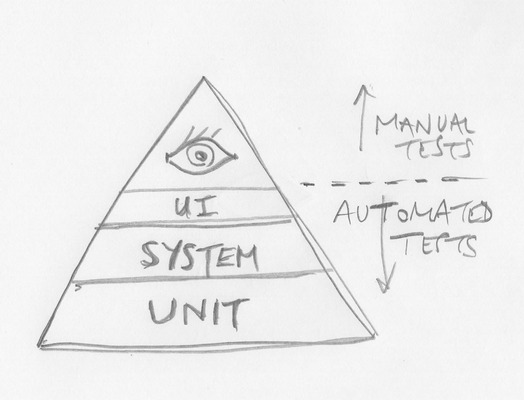 MANUAL
TESTS
UI
AUTOMATED
TESTS
SYSTEM
UNIT